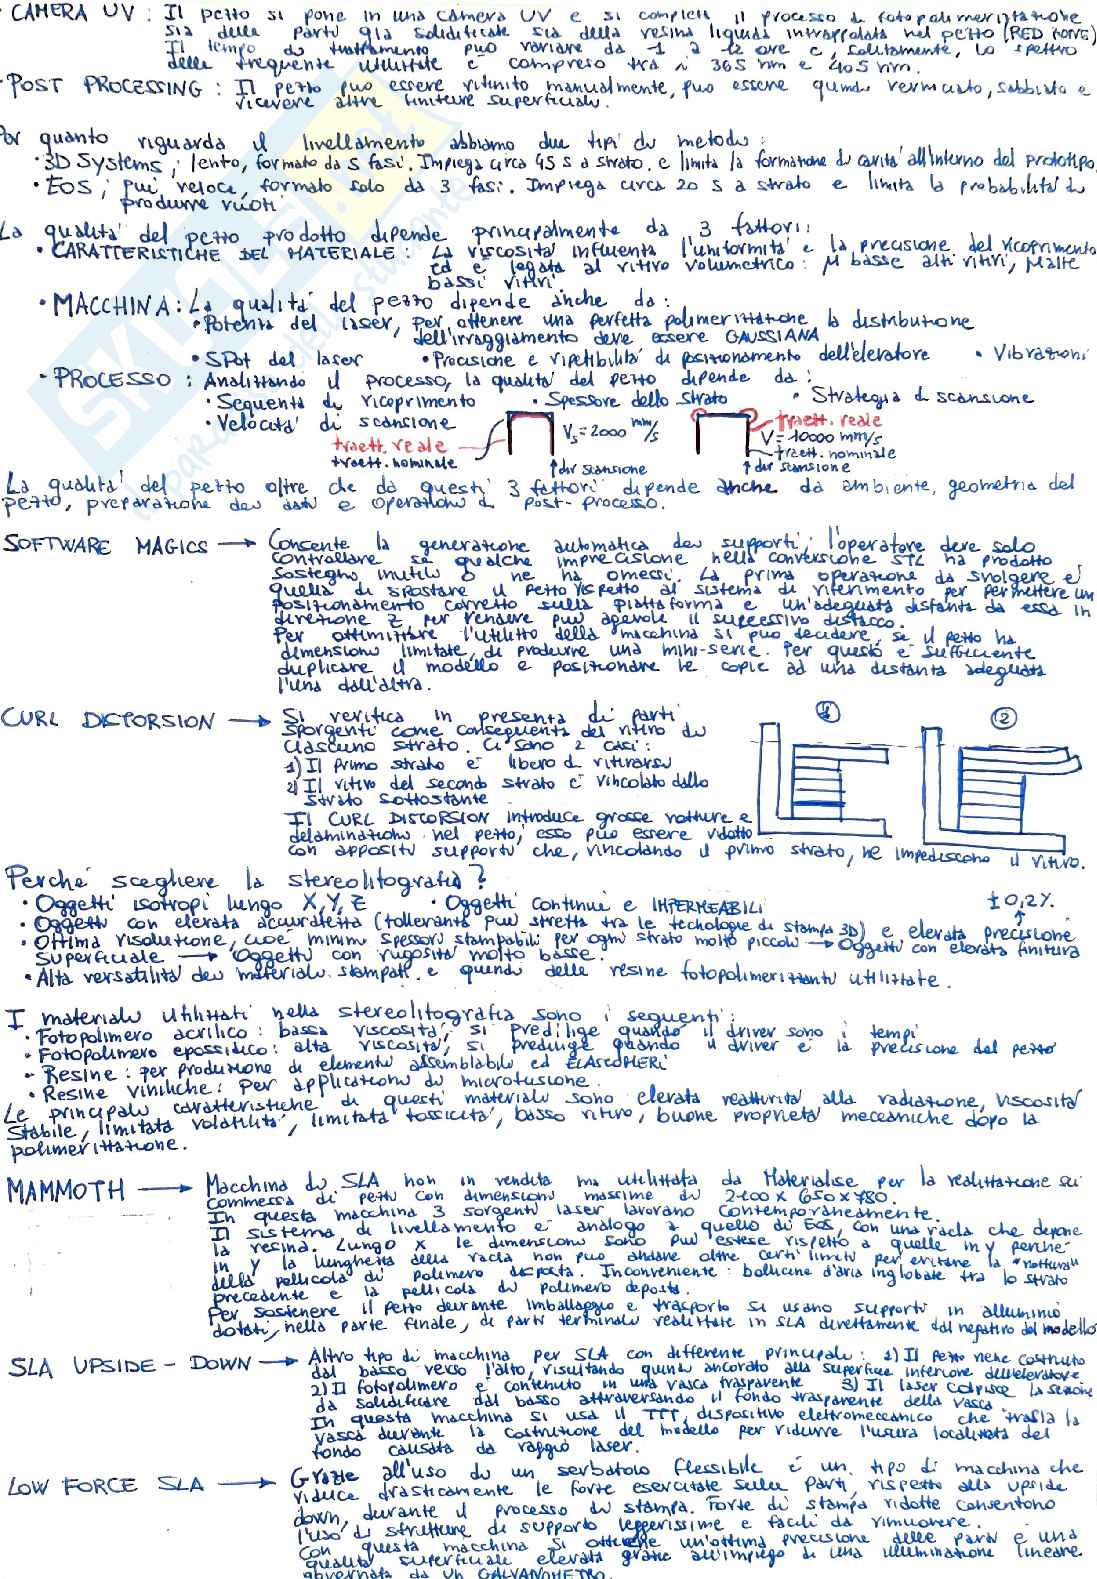 · CAMERA UV : Il pezzo si pone in una camera UV e si completa il processo di fotopolimerizzazione
sia delle parti già solidificate sia della resina liquida intrappolata nel pezzo (RED ZONE)
Il tempo di trattamento può variare da 1 a 12 ore e, solitamente, lo spettro
delle frequenze utilizzate è compreso tra i 365 nm e 405 nm.
· POST PROCESSING : Il pezzo può essere rifinito manualmente, può essere quindi verniciato, sabbiato e
ricevere altre finiture superficiali.
Per quanto riguarda il livellamento abbiamo due tipi di metodi:
· 3D Systems; lento, formato da 5 fasi. Impiega circa 45 s a strato. e limita la formazione di cavità all'interno del prototipo.
· EOS; più veloce, formato solo da 3 fasi. Impiega circa 20 s a strato e limita la probabilità di
produrre vuoti.
La qualità del pezzo prodotto dipende principalmente da 3 fattori:
· CARATTERISTICHE DEL MATERIALE : La viscosità influenza l'uniformità e la precisione del ricoprimento
ed è legata al ritiro volumetrico: μ basse alti ritiri, μ alte
bassi ritiri.
· MACCHINA : La qualità del pezzo dipende anche da:
· Potenza del laser, per ottenere una perfetta polimerizzazione la distribuzione
dell'irraggiamento deve essere GAUSSIANA
· Spot del laser · Precisione e ripetibilità di posizionamento dell'elevatore · Vibrazioni
· PROCESSO : Analizzando il processo, la qualità del pezzo dipende da:
· Sequenza di ricoprimento · Spessore dello strato · Strategia di scansione
· Velocità di scansione
traett. reale
traett. nominale
Vs = 2000 mm/s
↑ dir scansione
traett. reale
V = 10000 mm/s
traett. nominale
↑ dir scansione
La qualità del pezzo oltre che da questi 3 fattori dipende anche da ambiente, geometria del
pezzo, preparazione dei dati e operazioni di post-processo.
SOFTWARE MAGICS → Consente la generazione automatica dei supporti; l'operatore deve solo
controllare se qualche imprecisione nella conversione STL ha prodotto
sostegni inutili o ne ha omessi. La prima operazione da svolgere è
quella di spostare il pezzo rispetto al sistema di riferimento per permettere un
posizionamento corretto sulla piattaforma e un'adeguata distanza da essa in
direzione Z, per rendere più agevole il successivo distacco.
Per ottimizzare l'utilizzo della macchina si può decidere, se il pezzo ha
dimensioni limitate, di produrre una mini-serie. Per questo è sufficiente
duplicare il modello e posizionare le copie ad una distanza adeguata
l'una dall'altra.
CURL DISTORSION → Si verifica in presenza di parti
sporgenti come conseguenza del ritiro di
ciascuno strato. Ci sono 2 casi:
1) Il primo strato è libero di ritirarsi
2) Il ritiro del secondo strato è vincolato dallo
strato sottostante
1 2
Il CURL DISTORSION introduce grosse rotture e
delaminazioni nel pezzo, esso può essere ridotto
con appositi supporti che, vincolando il primo strato, ne impediscono il ritiro.
Perché scegliere la stereolitografia?
· Oggetti isotropi lungo X,Y,Z · Oggetti continui e IMPERMEABILI
±0,2%
· Oggetti con elevata accuratezza (tolleranza più stretta tra le tecnologie di stampa 3D) e elevata precisione
· Ottima risoluzione, cioè minimi spessori stampabili per ogni strato molto piccoli → Oggetti con elevata finitura
superficiale → Oggetti con rugosità molto basse.
· Alta versatilità dei materiali stampati. e quindi delle resine fotopolimerizzanti utilizzate.
I materiali utilizzati nella stereolitografia sono i seguenti:
· Fotopolimero acrilico : bassa viscosità, si predilige quando il driver sono i tempi
· Fotopolimero epossidico : alta viscosità, si predilige quando il driver è la precisione del pezzo
· Resine : per produzione di elementi assemblabili ed ELASTOMERI
· Resine viniliche : Per applicazioni di microfusione.
Le principali caratteristiche di questi materiali sono elevata reattività alla radiazione, viscosità
stabile, limitata volatilità, limitata tossicità, basso ritiro, buone proprietà meccaniche dopo la
polimerizzazione.
MAMMOTH → Macchina di SLA non in vendita ma utilizzata da Materialise per la realizzazione su
commessa di pezzi con dimensioni massime di 2100 x 650 x 780.
In questa macchina 3 sorgenti laser lavorano contemporaneamente.
Il sistema di livellamento è analogo a quello di EOS, con una racla che depone
la resina. Lungo x le dimensioni sono più estese rispetto a quelle in y perché
in y la lunghezza della racla non può andare oltre certi limiti per evitare la "rottura"
della pellicola di polimero deposta. Inconveniente : bollicine d'aria inglobate tra lo strato
precedente e la pellicola di polimero deposta.
Per sostenere il pezzo durante imballaggio e trasporto si usano supporti in alluminio
dotati, nella parte finale, di parti terminali realizzate in SLA direttamente dal negativo del modello
SLA UPSIDE - DOWN → Altro tipo di macchina per SLA con differenze principali: 1) Il pezzo viene costruito
dal basso verso l'alto, risultando quindi ancorato alla superficie inferiore dell'elevatore
2) Il fotopolimero è contenuto in una vasca trasparente 3) Il laser colpisce la sezione
da solidificare dal basso attraversando il fondo trasparente della vasca.
In questa macchina si usa il TTT, dispositivo elettromeccanico che trasla la
vasca durante la costruzione del modello per ridurre l'usura localizzata del
fondo causata da raggio laser.
LOW FORCE SLA → Grazie all'uso di un serbatoio flessibile è un tipo di macchina che
riduce drasticamente le forze esercitate sulle parti, rispetto alla upside
down, durante il processo di stampa. Forze di stampa ridotte consentono
l'uso di strutture di supporto leggerissime e facili da rimuovere.
Con questa macchina si ottiene un'ottima precisione delle parti e una
qualità superficiale elevata grazie all'impiego di una illuminazione lineare
governata da un GALVANOMETRO.